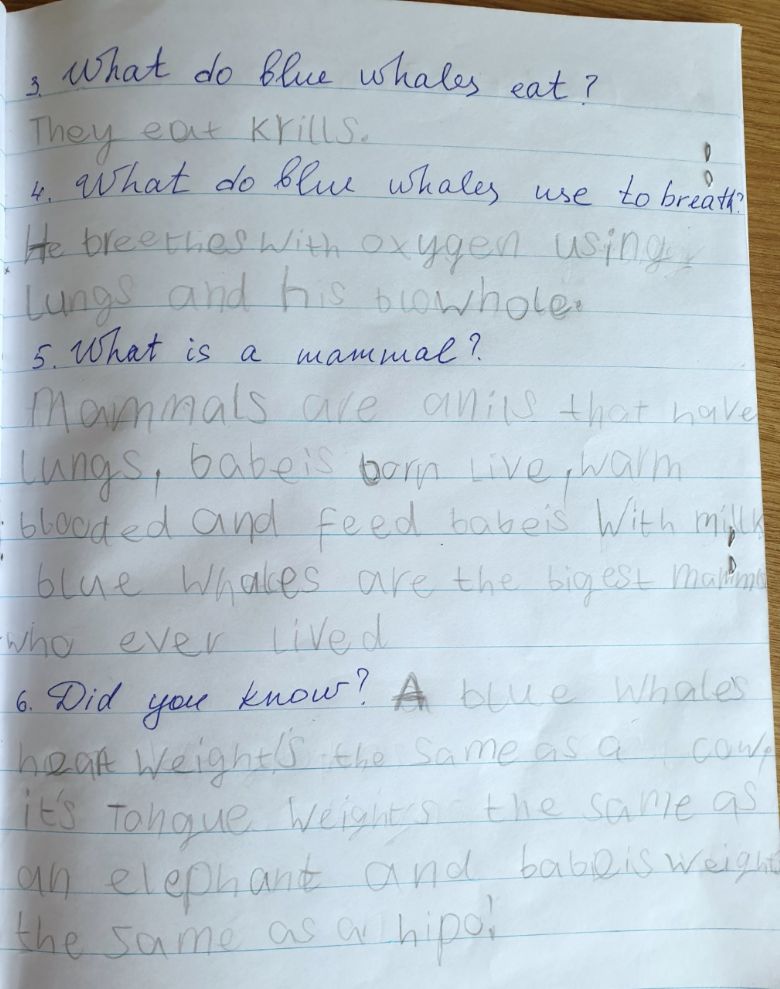 3. What do blue whales eat?
They eat Krills.
4. What do blue whales use to breath?
He breethes with oxygen using
Lungs and his blowhole.
5. What is a mammal?
Mammals are anils that have
Lungs, babeis born Live, warm
blooded and feed babeis With milk
blue Whales are the bigest mamm
who ever Lived
6. Did you know? A blue Whales
heart Weight's the same as a cow,
it's Tongue Weight's the same as
an elephant and babeis weight
the same as a hipo!